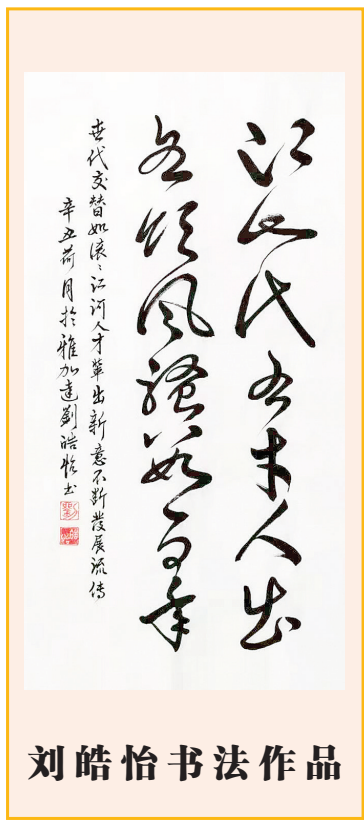 江山代有才人出
各领风骚数百年
世代交替如滚〻江河人才辈出新意不断發展流传
辛丑荷月於雅加達劉皓怡书
刘皓怡书法作品